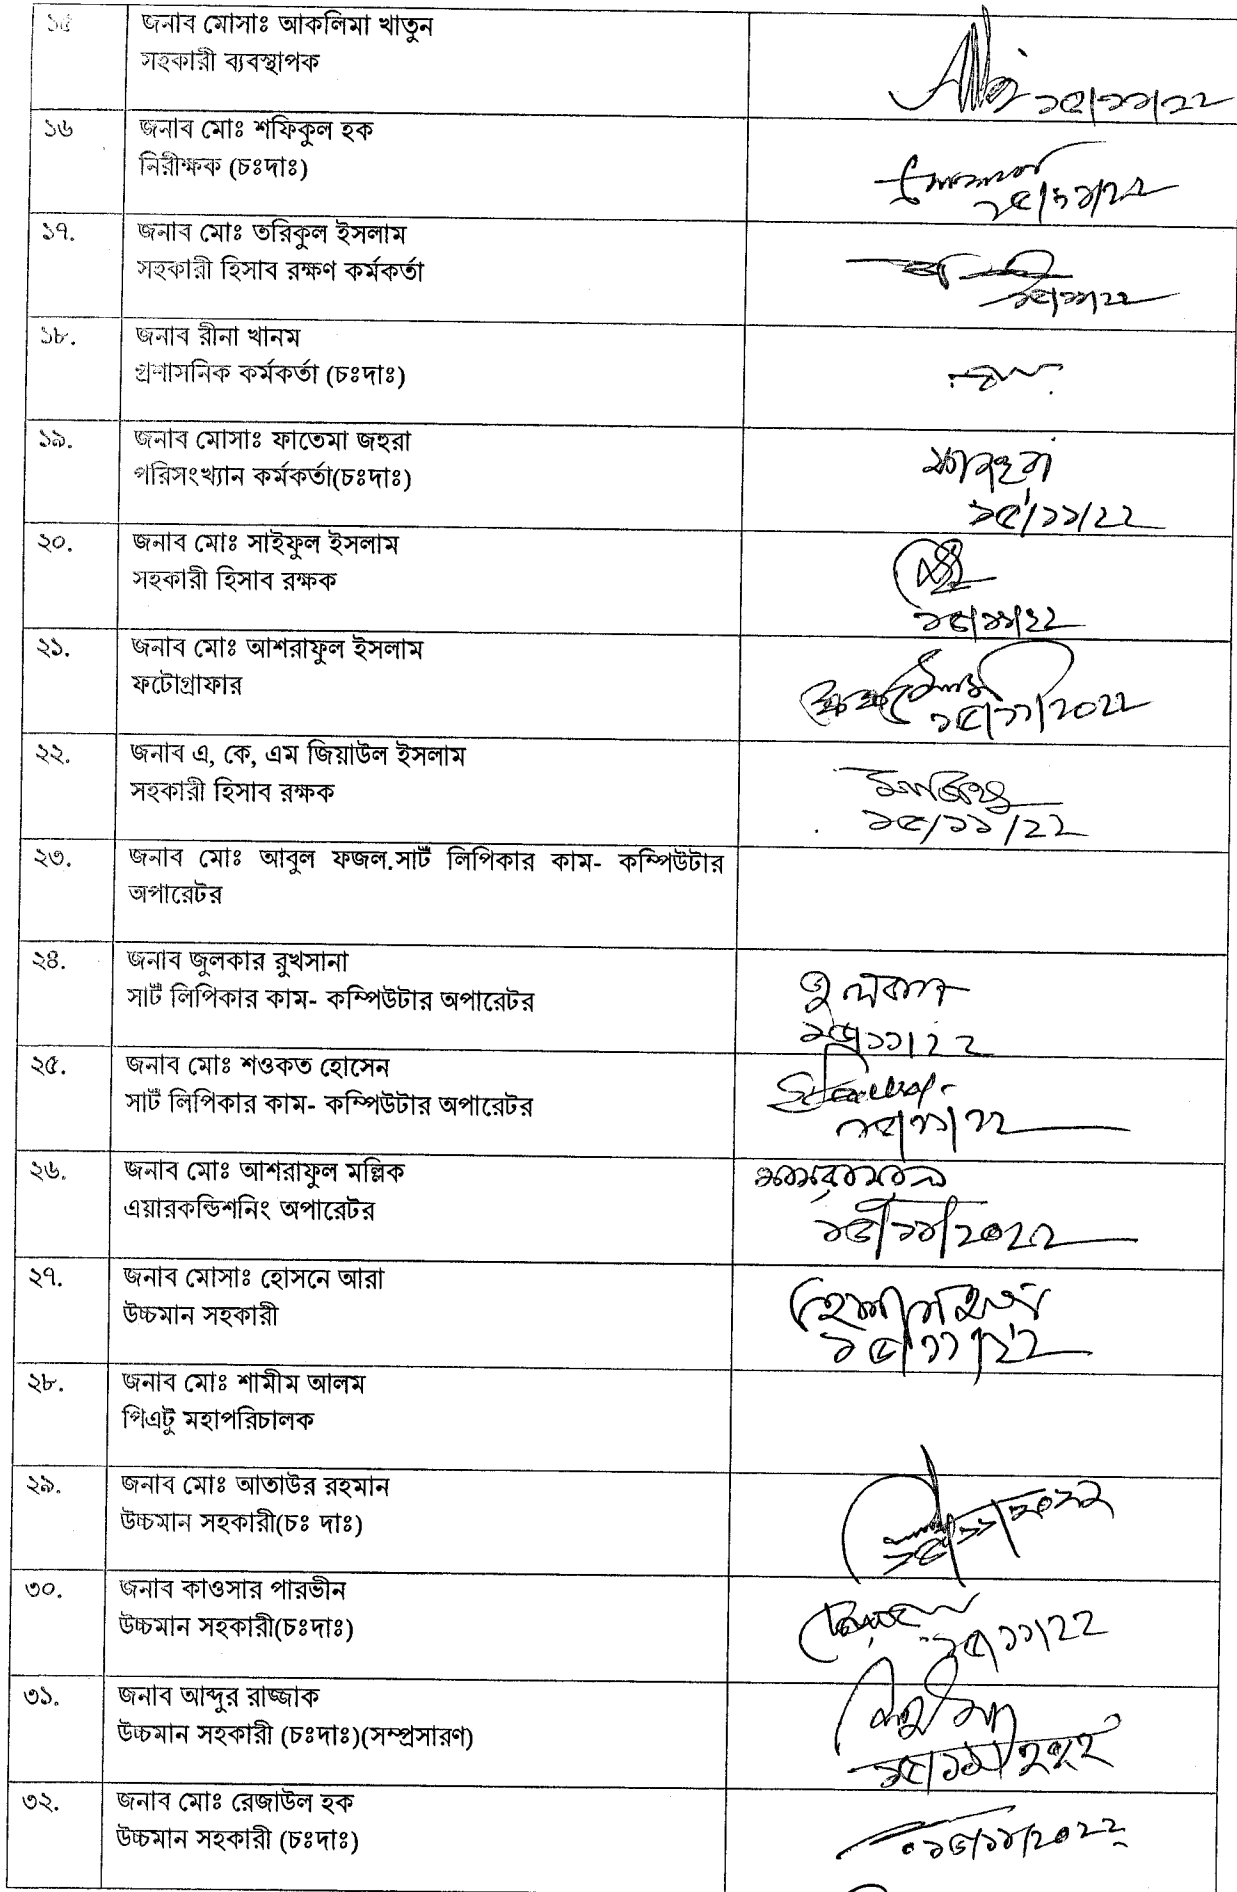 ১৫
জনাব মোসাঃ আকলিমা খাতুন
সহকারী ব্যবস্থাপক
১৫/১১/২২
১৬
জনাব মোঃ শফিকুল হক
নিরীক্ষক (চঃদাঃ)
১৫/১১/২২
১৭.
জনাব মোঃ তরিকুল ইসলাম
সহকারী হিসাব রক্ষণ কর্মকর্তা
১৫/১১/২২
১৮.
জনাব রীনা খানম
প্রশাসনিক কর্মকর্তা (চঃদাঃ)
১৯.
জনাব মোসাঃ ফাতেমা জহুরা
পরিসংখ্যান কর্মকর্তা(চঃদাঃ)
১৫/১১/২২
২০.
জনাব মোঃ সাইফুল ইসলাম
সহকারী হিসাব রক্ষক
১৫/১১/২২
২১.
জনাব মোঃ আশরাফুল ইসলাম
ফটোগ্রাফার
১৫/১১/২০২২
২২.
জনাব এ, কে, এম জিয়াউল ইসলাম
সহকারী হিসাব রক্ষক
১৫/১১/২২
২৩.
জনাব মোঃ আবুল ফজল.সার্ট লিপিকার কাম- কম্পিউটার
অপারেটর
২৪.
জনাব জুলকার রুখসানা
সার্ট লিপিকার কাম- কম্পিউটার অপারেটর
জুলকার
১৫/১১/২২
২৫.
জনাব মোঃ শওকত হোসেন
সার্ট লিপিকার কাম- কম্পিউটার অপারেটর
১৫/১১/২২
২৬.
জনাব মোঃ আশরাফুল মল্লিক
এয়ারকন্ডিশনিং অপারেটর
১৫/১১/২০২২
২৭.
জনাব মোসাঃ হোসনে আরা
উচ্চমান সহকারী
১৫/১১/২২
২৮.
জনাব মোঃ শামীম আলম
পিএটু মহাপরিচালক
২৯.
জনাব মোঃ আতাউর রহমান
উচ্চমান সহকারী(চঃ দাঃ)
১৫/১১/২০২২
৩০.
জনাব কাওসার পারভীন
উচ্চমান সহকারী(চঃদাঃ)
১৫/১১/২২
৩১.
জনাব আব্দুর রাজ্জাক
উচ্চমান সহকারী (চঃদাঃ)(সম্প্রসারণ)
৩২.
জনাব মোঃ রেজাউল হক
উচ্চমান সহকারী (চঃদাঃ)
১৫/১১/২০২২